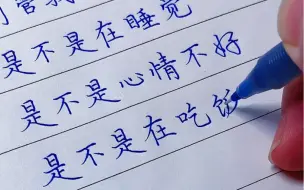 是不是在睡觉
是不是心情不好
是不是在吃饭